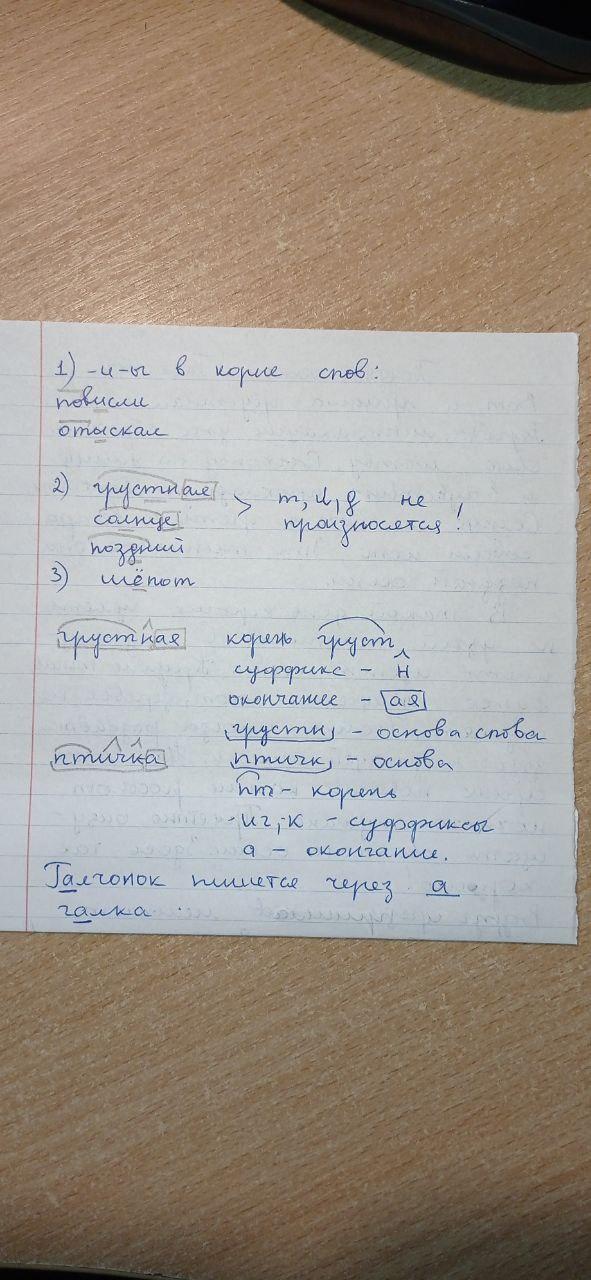 1) -и-ы в корне слов:
повисли
отыскал
2) грустная > т, л, д не
солнце произносятся!
поздний
3) шёпот
грустная корень груст
суффикс - н
окончание - ая
грустн - основа слова
птичка птичк - основа
пт - корень
-ич, -к - суффиксы
а - окончание.
Галчонок пишется через а
галка